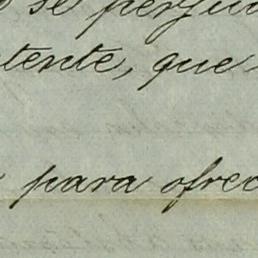 se perju
tente, que
para ofrec